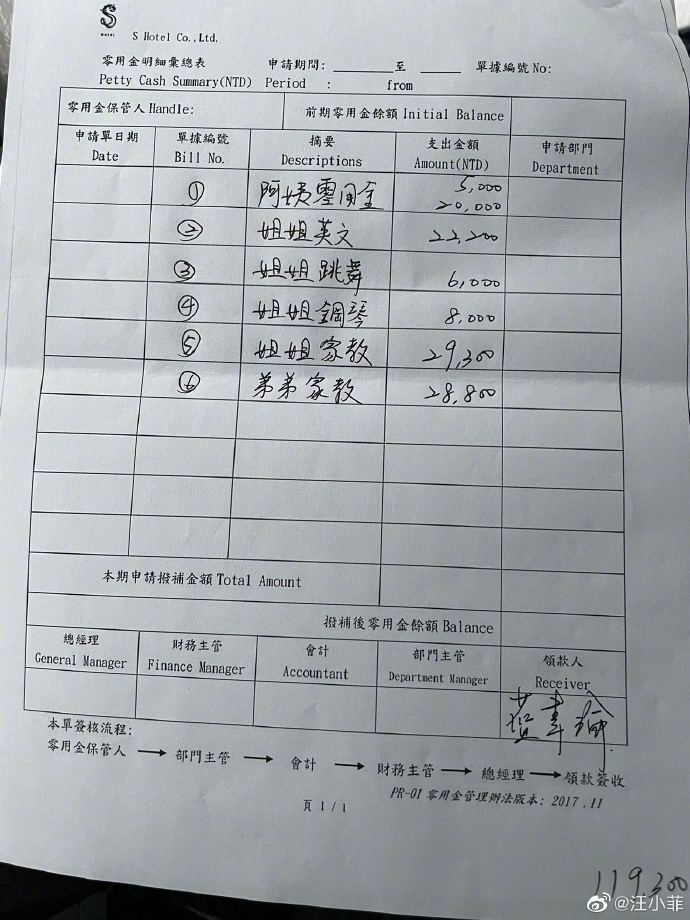 S
HOTEL
S Hotel Co.,Ltd.
零用金明細彙總表 申請期間: ______ 至 ______ 單據編號 No:
Petty Cash Summary(NTD) Period : from
零用金保管人 Handle: 前期零用金餘額 Initial Balance
申請單日期 單據編號 摘要 支出金額 申請部門
Date Bill No. Descriptions Amount(NTD) Department
① 阿姨零用金 5,000
20,000
② 姐姐英文 22,200
③ 姐姐跳舞 6,000
④ 姐姐鋼琴 8,000
⑤ 姐姐家教 29,300
⑥ 弟弟家教 28,800
本期申請撥補金額 Total Amount
撥補後零用金餘額 Balance
總經理 財務主管 會計 部門主管 領款人
General Manager Finance Manager Accountant Department Manager Receiver
本單簽核流程:
零用金保管人 → 部門主管 → 會計 → 財務主管 → 總經理 → 領款簽收
PR-01 零用金管理辦法版本: 2017.11
頁 1/1
119,300
@汪小菲